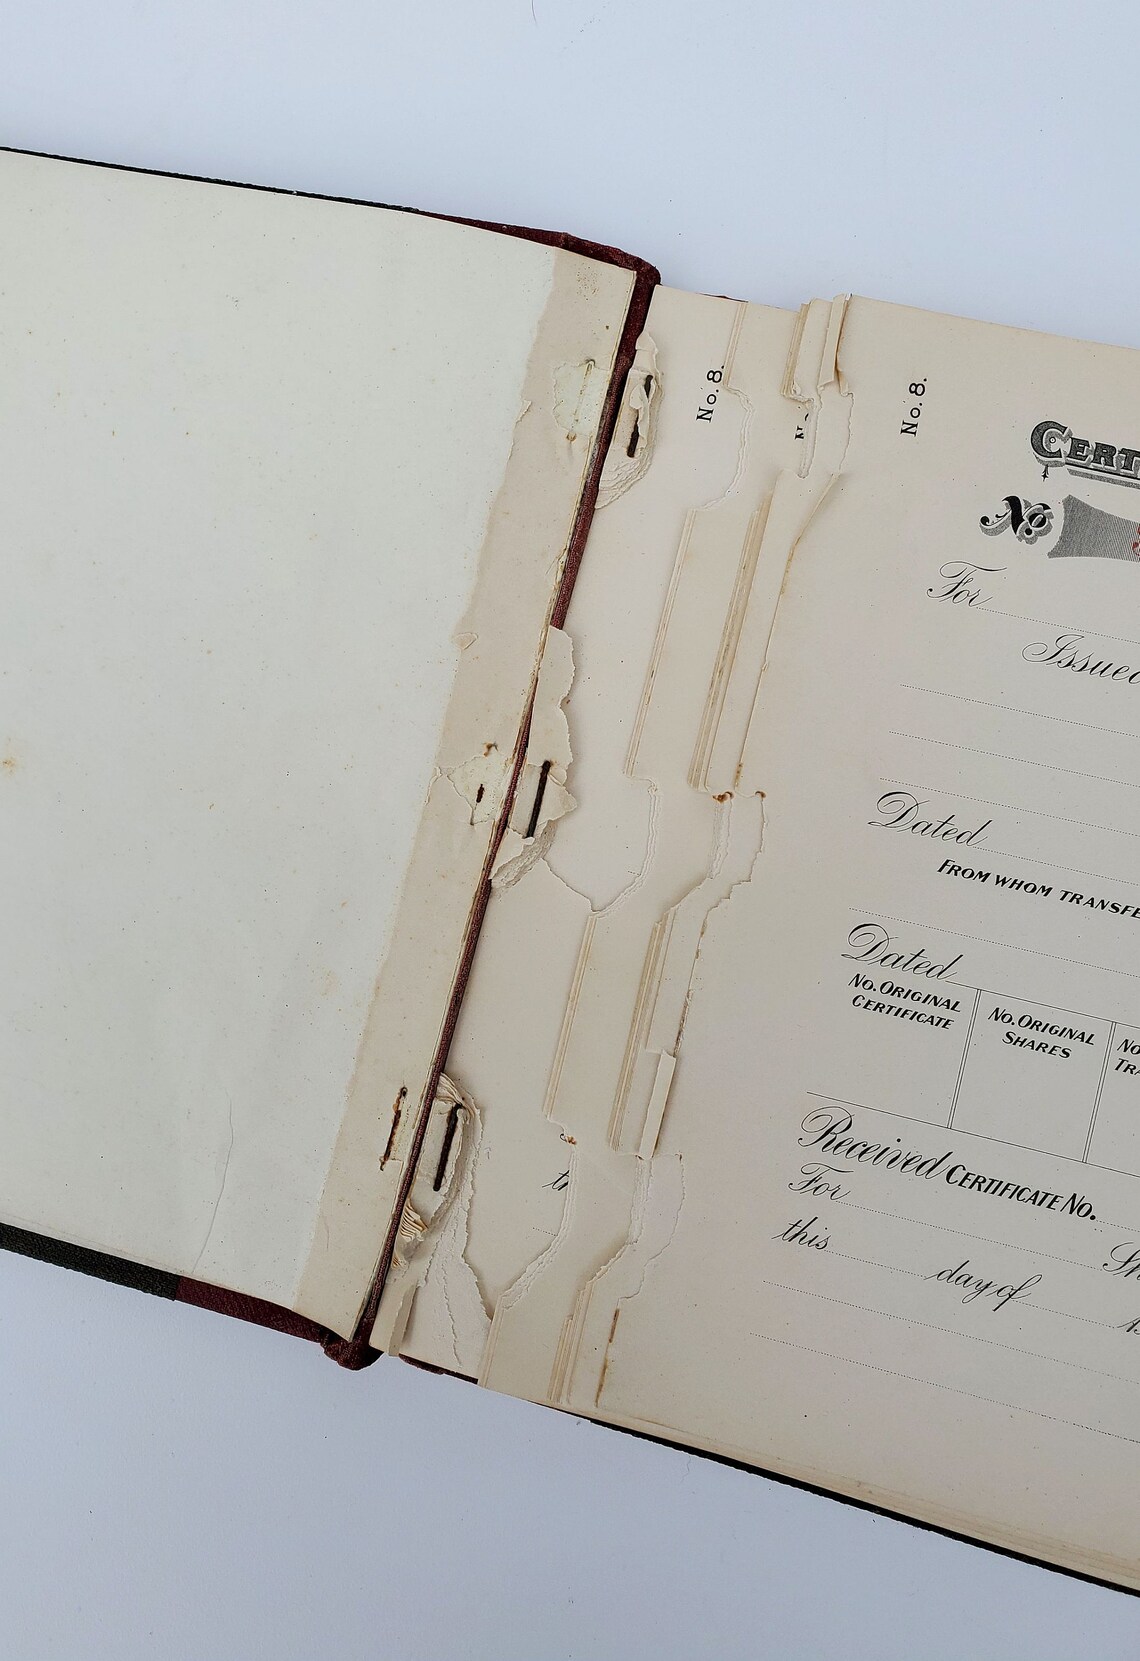 No. 8.
No. 8.
CERT
No.
For
Issued
Dated
FROM WHOM TRANSFE
Dated
No. ORIGINAL
CERTIFICATE
No. ORIGINAL
SHARES
No
TRA
Received CERTIFICATE No.
For
Sh
this
day of